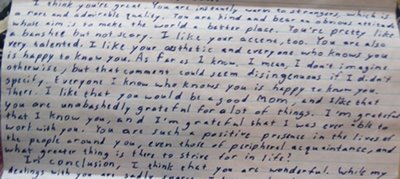 I think you're great. You are instantly warm to strangers, which is
a rare and admirable quality. You are kind and bear an obvious
whose aim is make the world a better place. You're pretty like
a banshee but not scary. I like your accent, too. You are also
very talented. I like your aesthetic and everyone who knows you
is happy to know you. As far as I know, I mean, I don't imagine
otherwise, but that comment could seem disingenuous if I didn't
specify. Everyone I know who knows you is happy to know you.
There. I like that you would be a good mom, and I like that
you are unabashedly grateful for a lot of things. I'm grateful
that I know you, and I'm grateful that I was ever able to
work with you. You are such a positive presence in the lives of
the people around you, even those of peripheral acquaintance, and
what greater thing is there to strive for in life?
In conclusion, I think that you are wonderful. While my
dealings with you are sadly